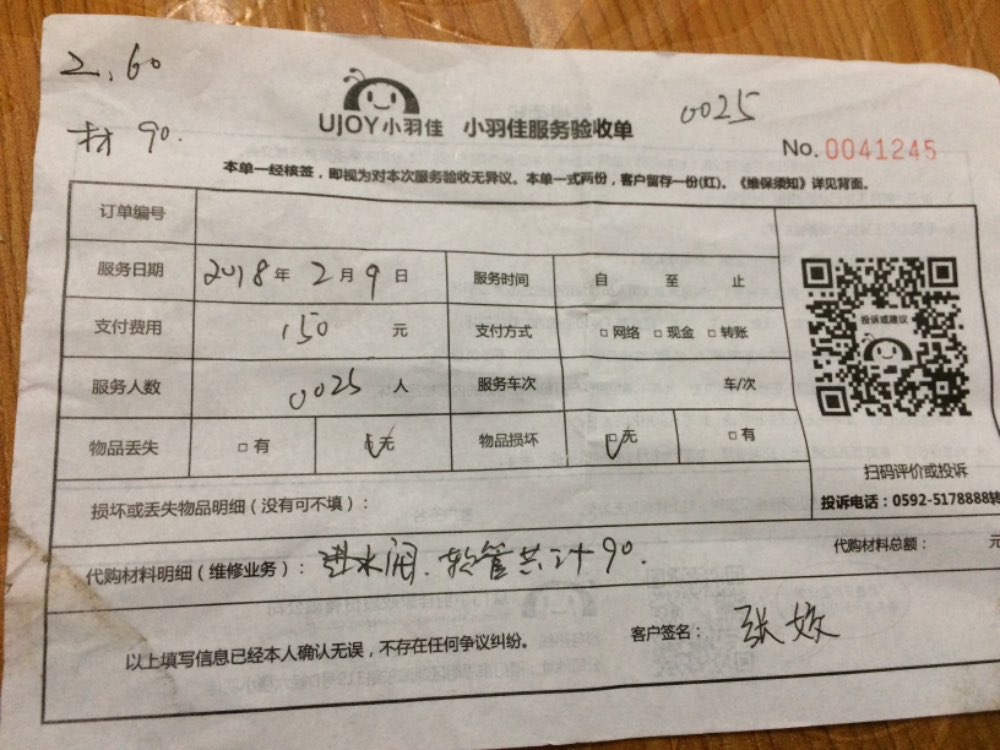 工、60
0025
材 90.
UJOY小羽佳 小羽佳服务验收单
No. 0041245
本单一经核签，即视为对本次服务验收无异议。本单一式两份，客户留存一份(红)。《维保须知》详见背面。
订单编号
服务日期 2018年 2月9日 服务时间 自 至 止
支付费用 150 元 支付方式 □网络 □现金 □转账
投诉或建议
服务人数 0025 人 服务车次 车/次
物品丢失 □有 □无 物品损坏 □无 □有
扫码评价或投诉
损坏或丢失物品明细（没有可不填）：
投诉电话：0592-5178888转
代购材料明细（维修业务）：进水阀、软管共计90.
代购材料总额： 元
以上填写信息已经本人确认无误，不存在任何争议纠纷。
客户签名：张姣